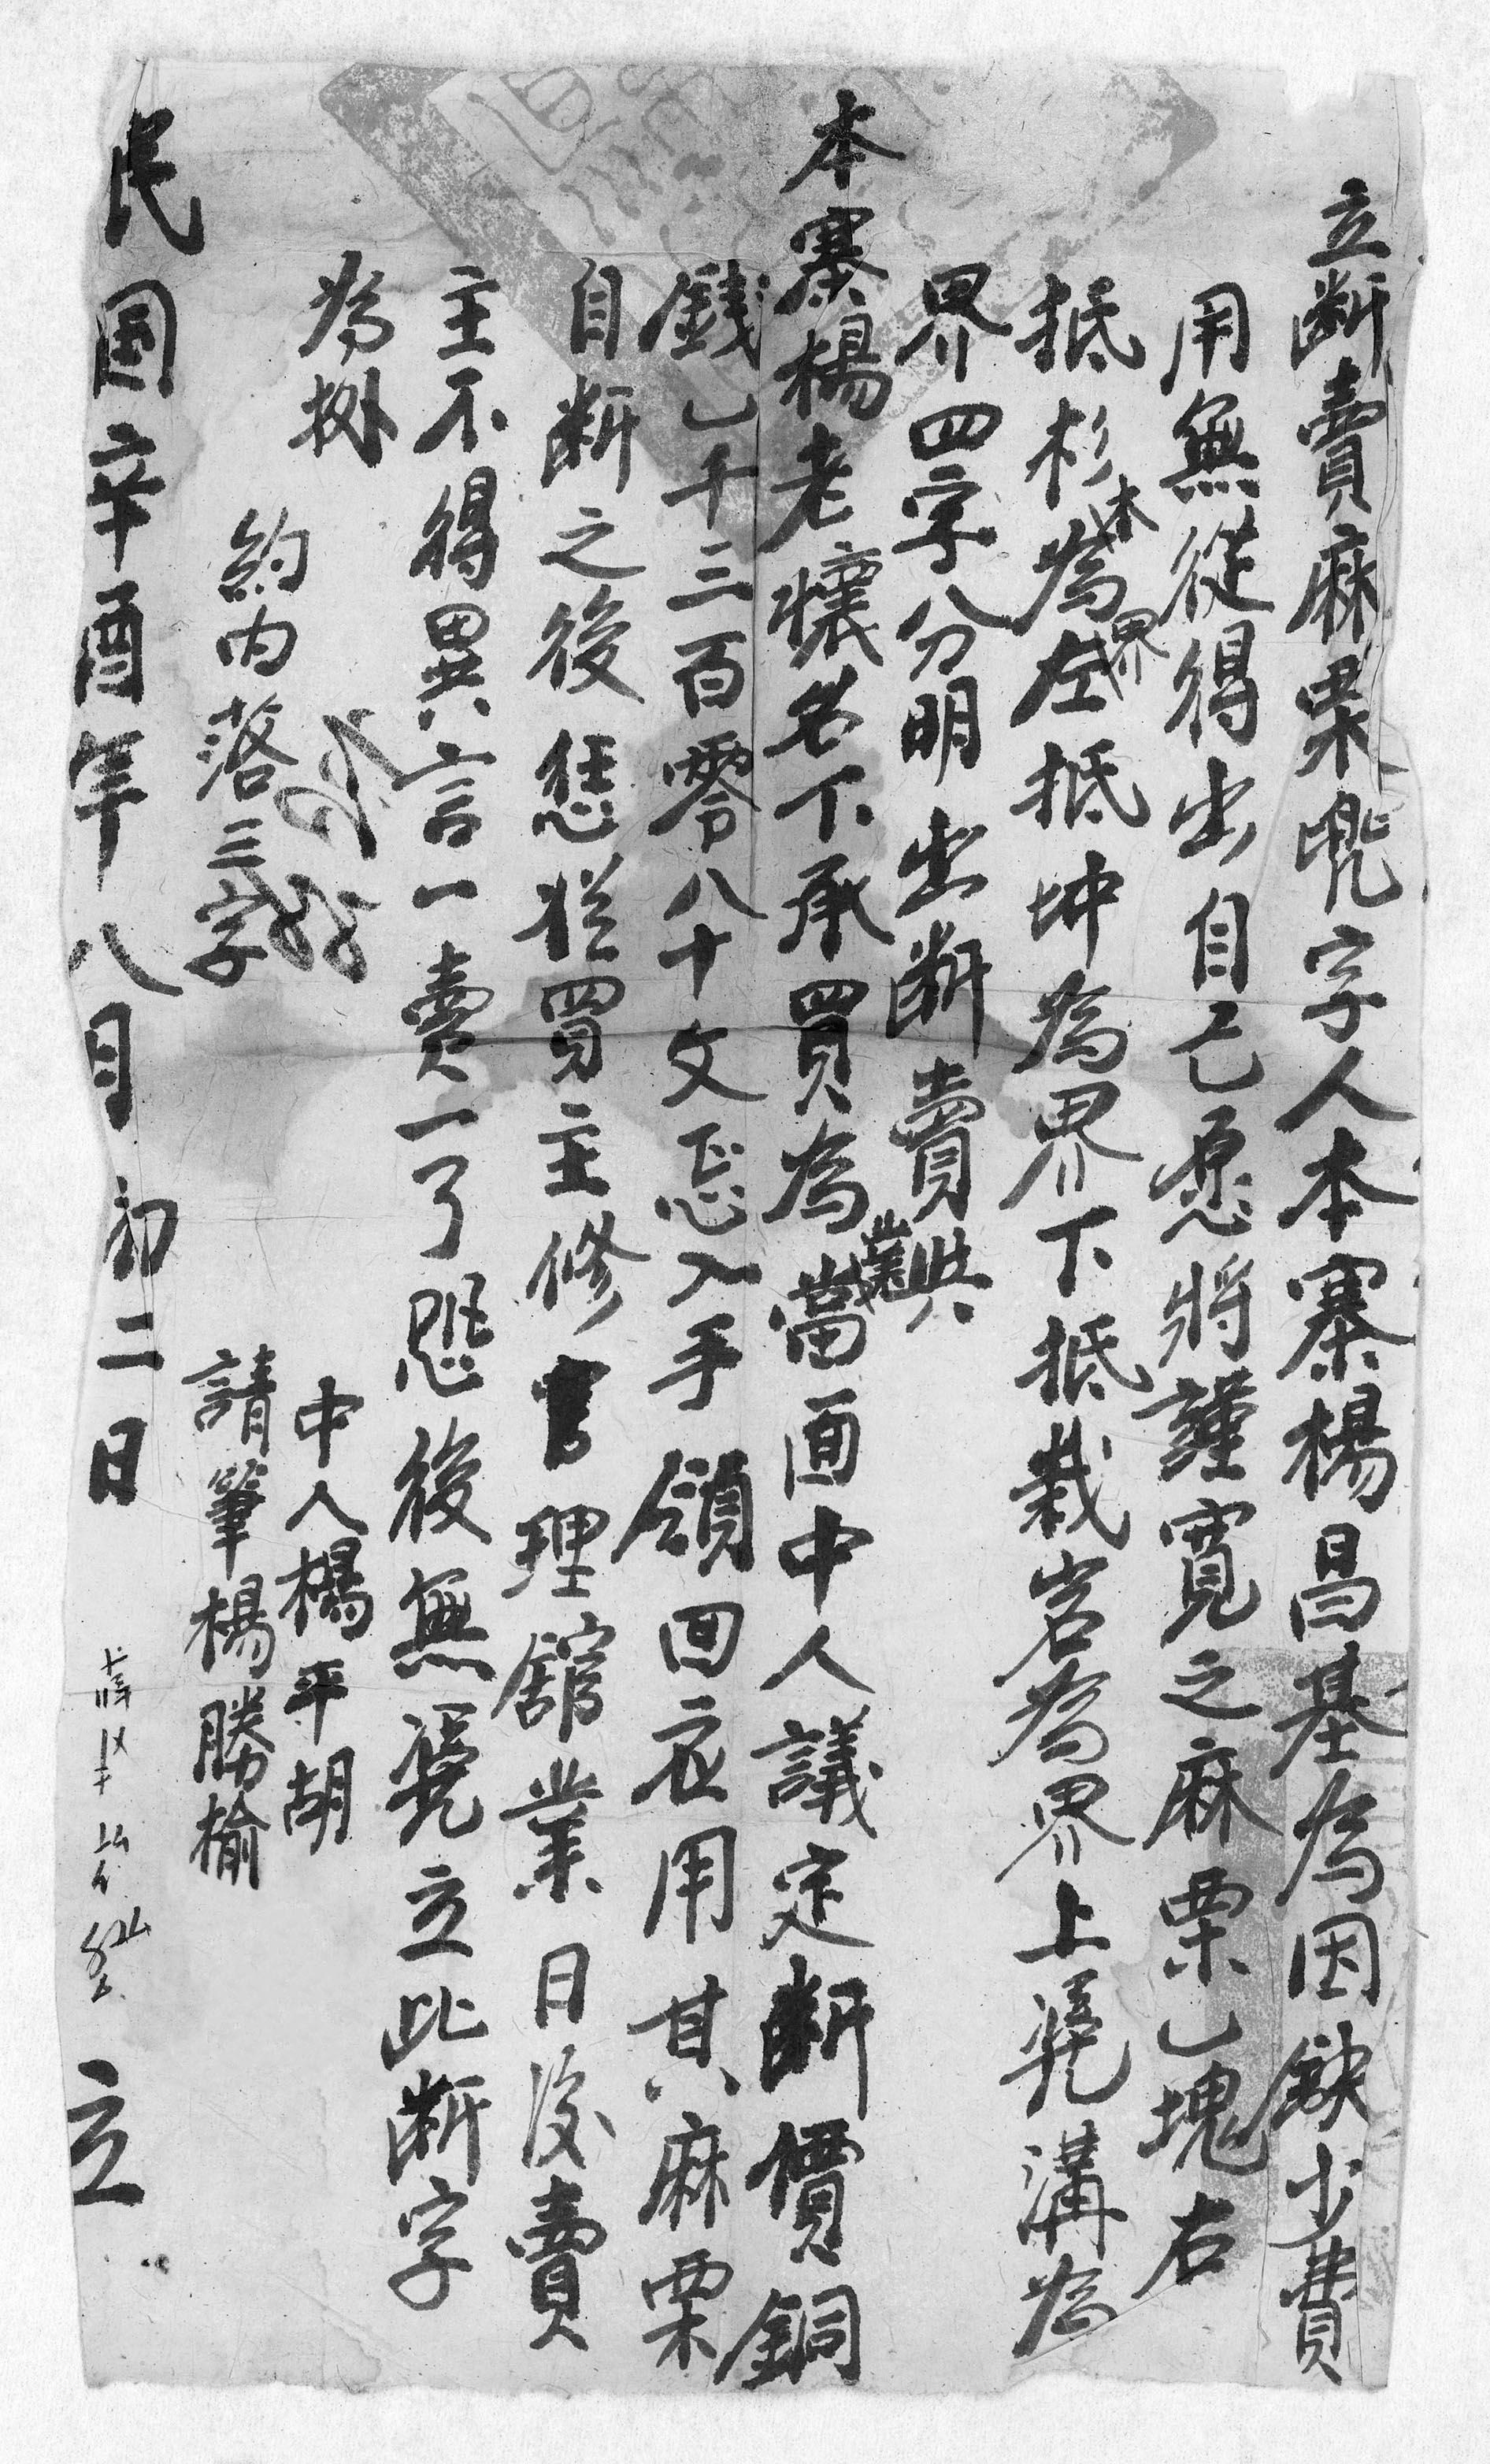 立断賣麻栗兠字人本寨楊昌基為因缺少費
用無從得出自己愿將謹寬之麻栗乚塊右
抵杉木為界左抵坤為界下抵栽岩為界上凭溝為
界四字分明出断賣與
本寨楊老懷名下承買為業當面中人議定断價銅
錢乚千三百零八十文忘入手領回家用其麻栗
自断之後恁從買主修理舘業日後賣
主不得異言一賣一了恐後無凴立此断字
為拠
約内落三字
中人楊平胡
請筆楊勝榆
民国辛酉年八月初二日 立